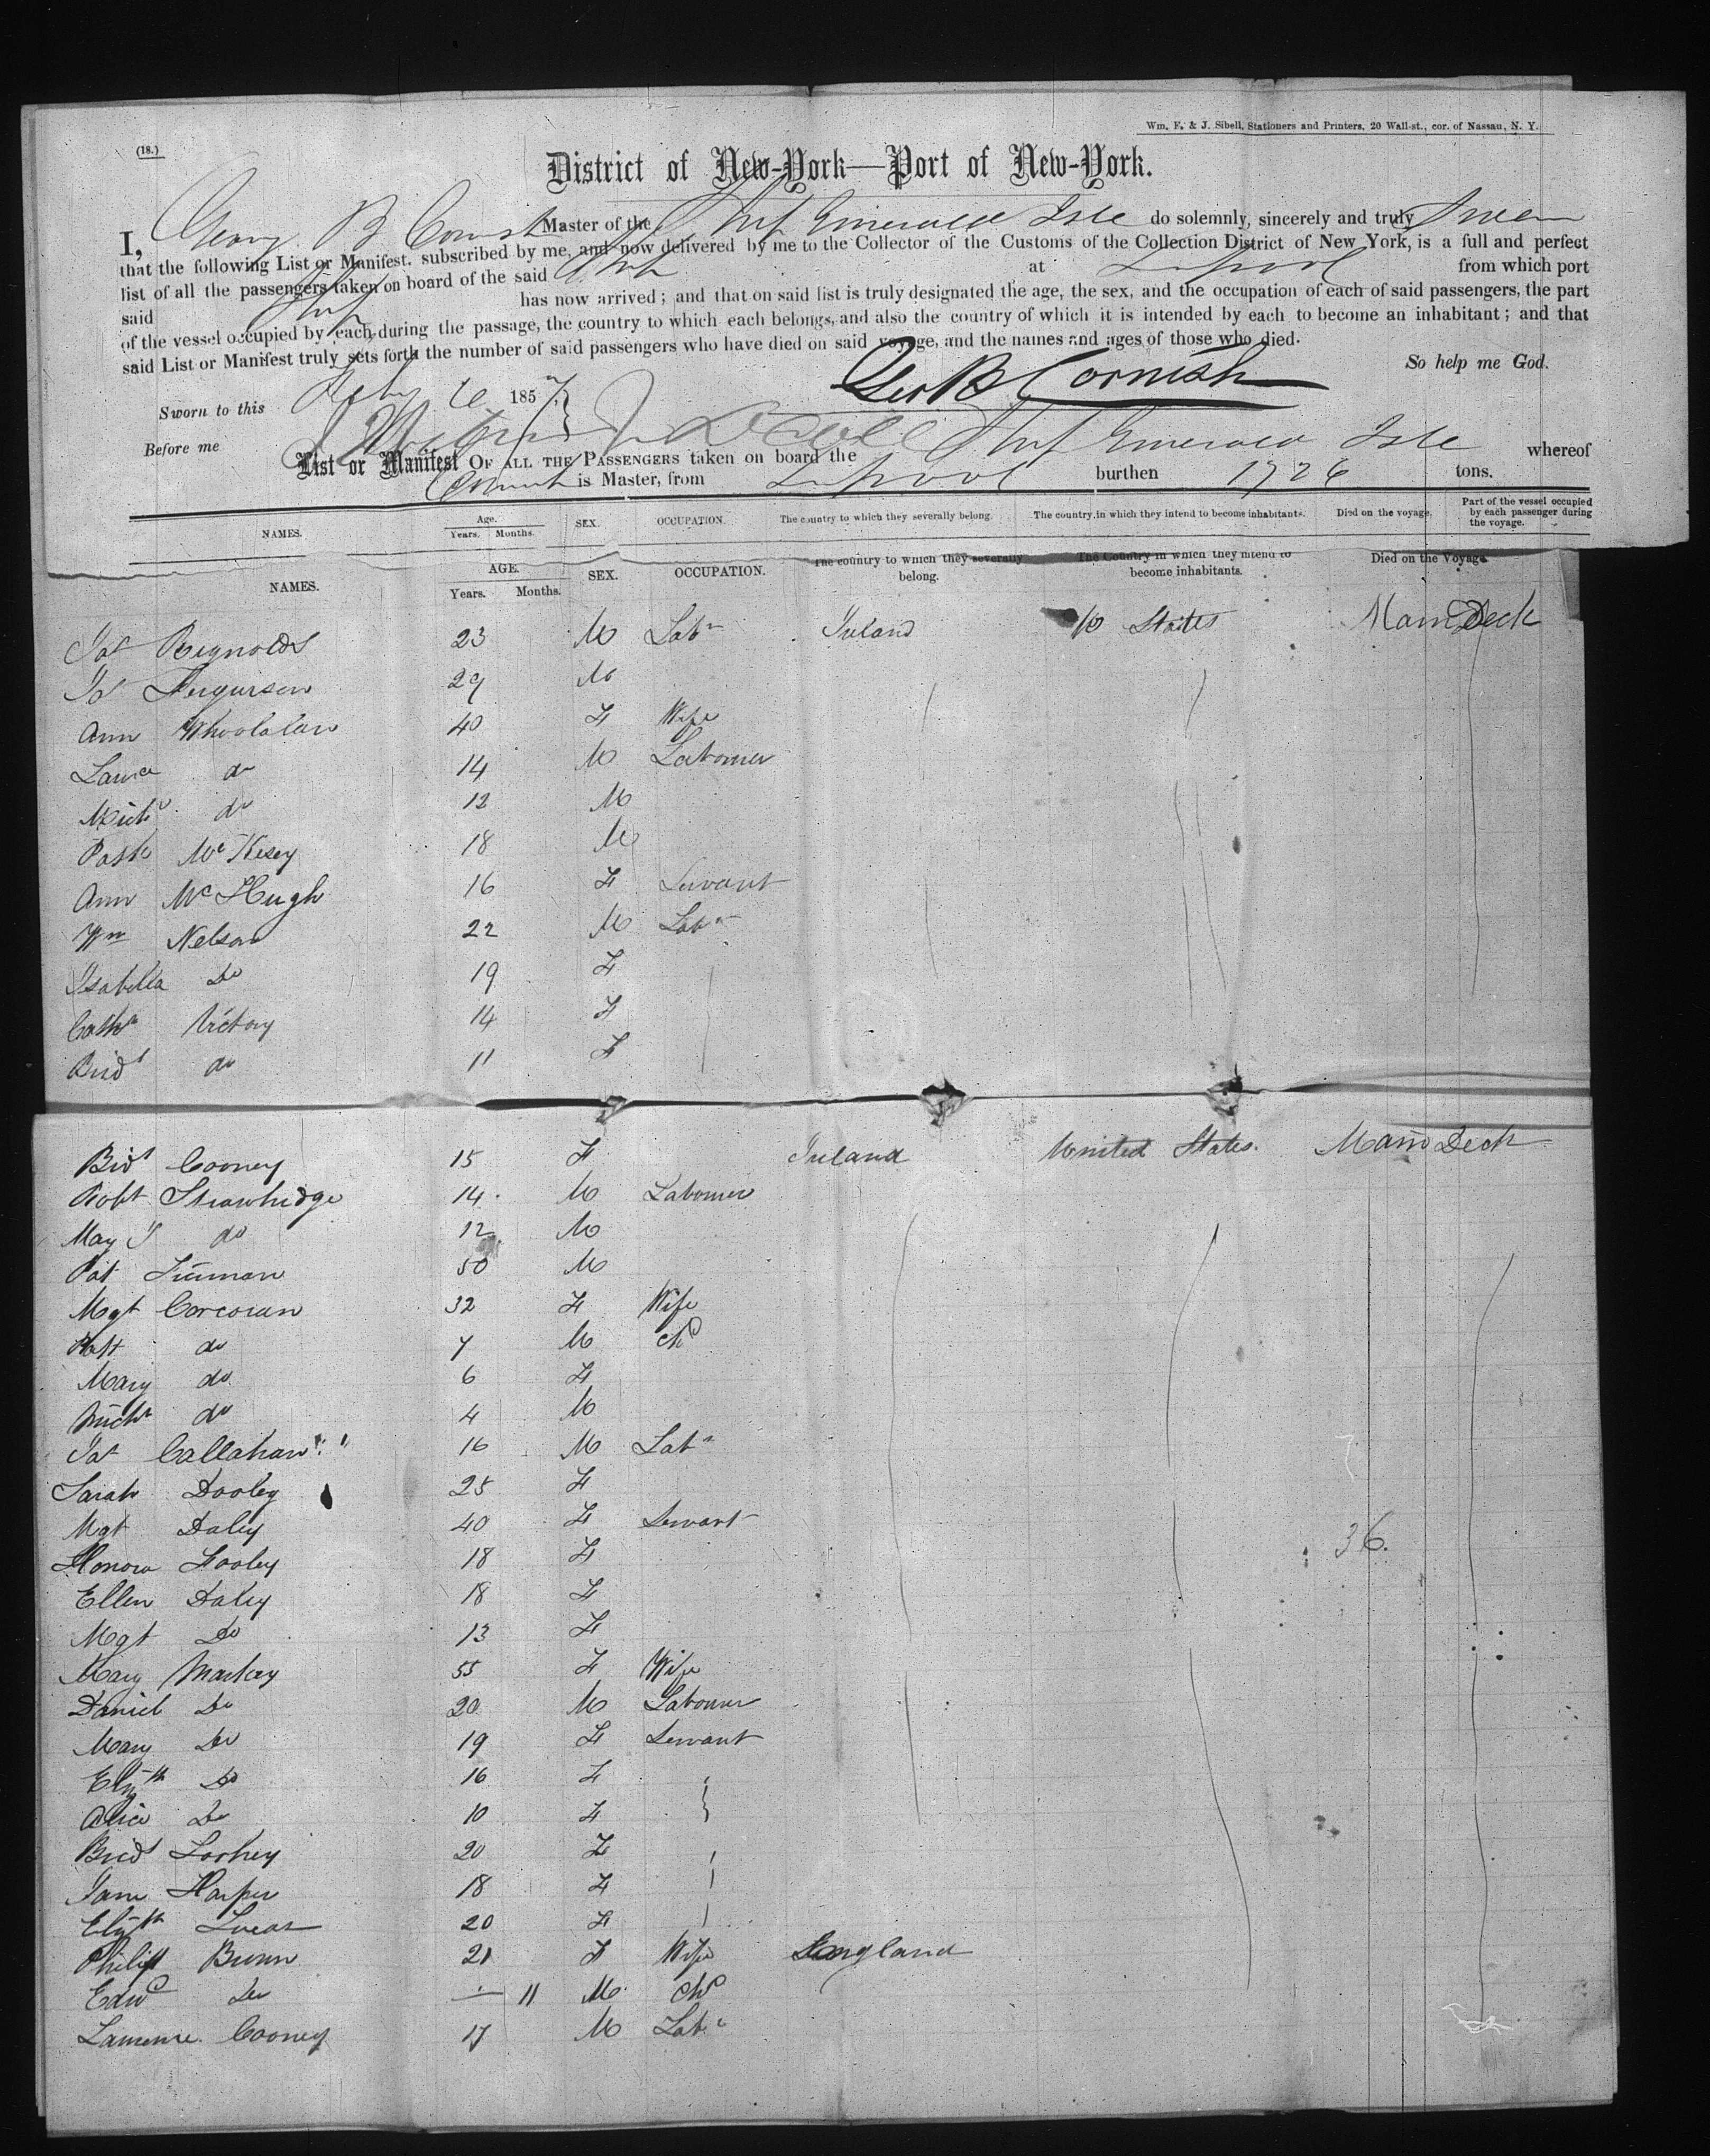 Wm. F. & J. Sibell, Stationers and Printers, 20 Wall-st., cor. of Nassau, N. Y.
(18.)
District of New-York—Port of New-York.
I, George B Cornish Master of the Ship Emerald Isle do solemnly, sincerely and truly swear
that the following List or Manifest, subscribed by me, and now delivered by me to the Collector of the Customs of the Collection District of New York, is a full and perfect
list of all the passengers taken on board of the said Ship at Lpool from which port
said Ship has now arrived; and that on said list is truly designated the age, the sex, and the occupation of each of said passengers, the part
of the vessel occupied by each during the passage, the country to which each belongs, and also the country of which it is intended by each to become an inhabitant; and that
said List or Manifest truly sets forth the number of said passengers who have died on said voyage, and the names and ages of those who died.
So help me God.
Geo B Cornish
Sworn to this Feby 1857
Before me
List or Manifest OF ALL THE PASSENGERS taken on board the Ship Emerald Isle whereof
Cornish is Master, from Lpool burthen 1726 tons.
NAMES. Age. Years. Months. SEX. OCCUPATION. The country to which they severally belong. The country in which they intend to become inhabitants. Died on the voyage. Part of the vessel occupied by each passenger during the voyage.
NAMES. AGE. Years. Months. SEX. OCCUPATION. The country to which they severally belong. The Country in which they intend to become inhabitants. Died on the Voyage
Reynolds 23 M Labr Ireland U States Main Deck
Fergurson 29 M
Ann Whoolalan 40 F Wife
Lawce do 14 M Labourer
Michl do 12 M
18 M
Ann McHugh 16 F Servant
Wm Nelson 22 M Labr
Isabella Do 19 F
Cathn Victory 14 F
Bridt do 11 F
Bridt Cooney 15 F Ireland United States. Main Deck
Robt Strawbridge 14. M Labourer
May J do 12 M
Pat 50 M
Mgt Corcoran 32 F Wife
Patt do 7 M Chd
Mary do 6 F
Michl do 4 M
Callahan 16 M Labr
Sarah Dooley 25 F
Mgt Daley 40 F Servant
36.
Honora Fooley 18 F
Ellen Daley 18 F
Mgt Do 13 F
Mary Mackey 55 F Wife
Daniel Do 20 M Labourer
Mary Do 19 F Servant
Elizth Do 16 F
Alice Do 10 F
Bridt 20 F
Jane Harper 18 F
Elizth Lucas 20 F
21 F Wife England
Edwd Do — 11 M Chd
Lawrence Cooney 17 M Labr